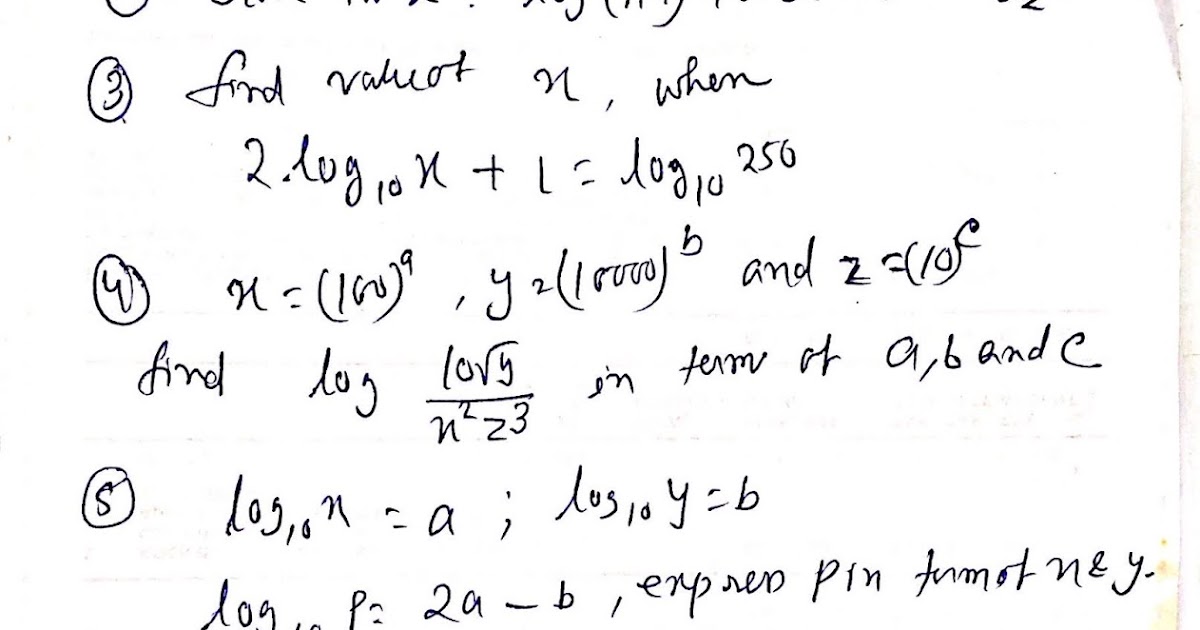 ③ find value of x, when
2.log₁₀x + 1 = log₁₀ 250
④ x = (100)ᵃ, y = (10000)ᵇ and z = (10)ᶜ
find log 10√y / x²z³ in term of a, b and c
⑤ log₁₀x = a ; log₁₀y = b
log₁₀ P = 2a - b, express p in term of x & y.